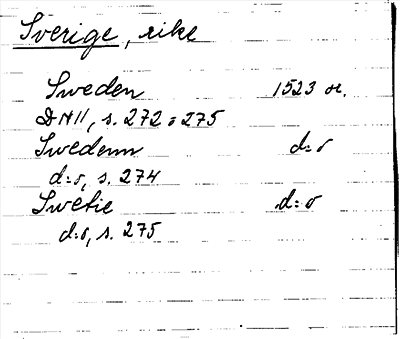 Sverige, rike
Sweden 1523 or.
DN II, s. 272 o 275
Swedenn d:o
d:o, s. 274
Swetie d:o
d:o, s. 275